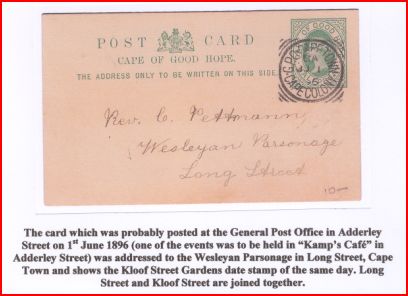 POST CARD
CAPE OF GOOD HOPE.
THE ADDRESS ONLY TO BE WRITTEN ON THIS SIDE.
OF GOOD
G.P.O. CAPE TOWN
CAPE COLONY
Rev. C. Pettmann,
Wesleyan Parsonage
Long Street
10-
The card which was probably posted at the General Post Office in Adderley
Street on 1st June 1896 (one of the events was to be held in “Kamp’s Café” in
Adderley Street) was addressed to the Wesleyan Parsonage in Long Street, Cape
Town and shows the Kloof Street Gardens date stamp of the same day. Long
Street and Kloof Street are joined together.